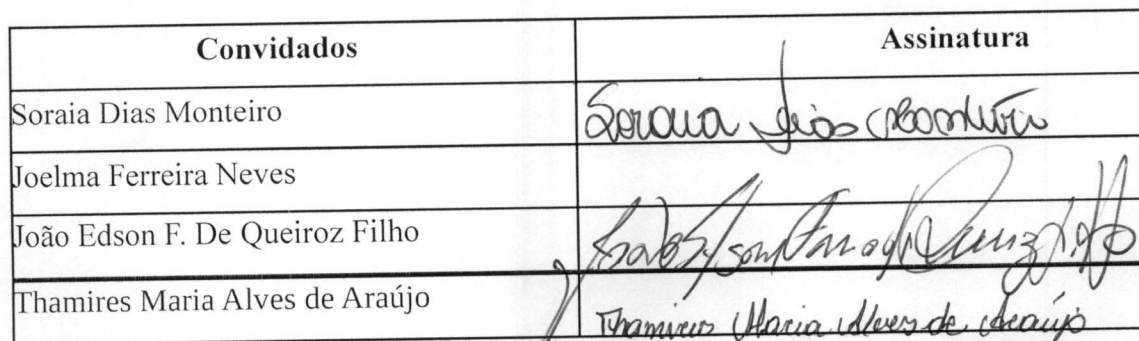 Convidados Assinatura
Soraia Dias Monteiro Soraia Dias Monteiro
Joelma Ferreira Neves
João Edson F. De Queiroz Filho João Edson
Thamires Maria Alves de Araújo Thamires Maria Alves de Araújo